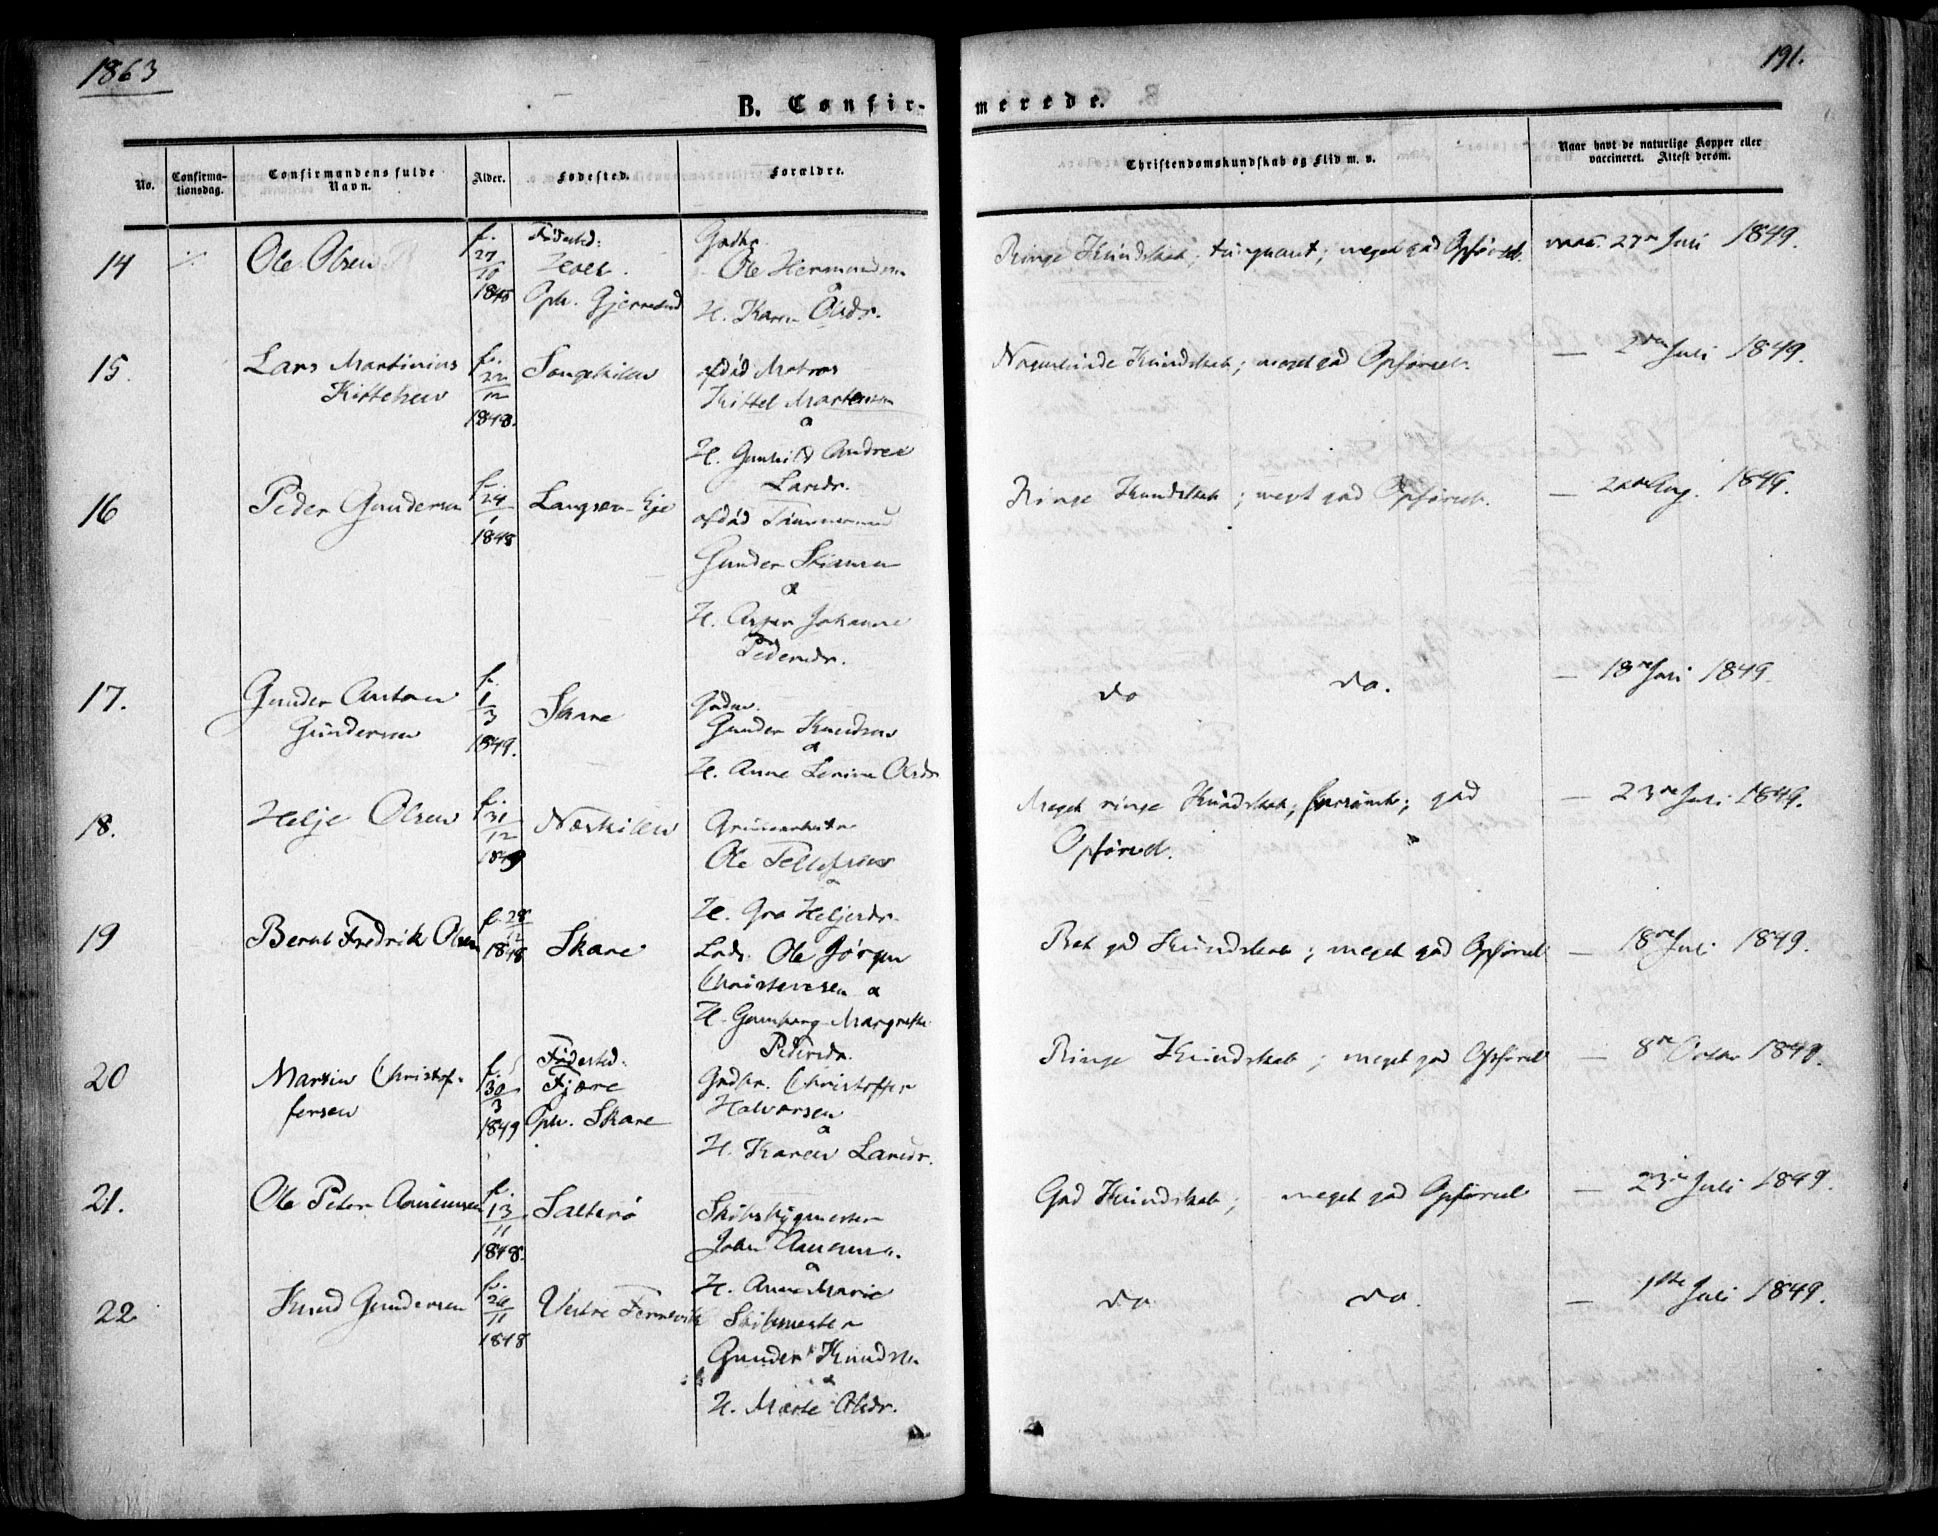 1863
191.
B. Confir-
merede.
No.
Confirma-
tionsdag.
Confirmandens fulde
Navn.
Alder.
Fødested.
Forældre.
Christendomskundskab og Flid m. v.
Naar havt de naturlige Kopper eller
vaccineret. Attest derom.
14
Ole Olsen
f.
27
10
1848
Fødested:
Oph. Gjermund
Gadbr.
Ole Hermundsen
&
H. Karen Olsdr.
Ringe Kundskab; meget god Opførsel.
vacc. 27de Juli 1849.
15.
Lars Martinius
Kittelsen
f.
22
12
1848.
Songekilen
afdød Matros
Kittel Martensen
&
H. Gunhild Andrea
Larsdr.
Nogenlunde Kundskab; meget god Opførsel.
— 2den Juli 1849.
16
Peder Gundersen
f.
24
1
1848
Langsæv-Eje
afdød Tømmermand
Gunder
&
H. Johanne
Pedersdr.
Ringe Kundskab; meget god Opførsel.
— Aug. 1849.
17.
Gunder Anton
Gundersen
f.
1
3
1849.
Skare
Gunder Knudsen
&
H. Anne Lenine Olsdr
do do.
— 18de Juli 1849.
18.
Helje Olsen
f.
31
12
1849
Næskilen
Ole Tellefsen
&
H. Gro Heljesdr.
Meget ringe Kundskab; god
Opførsel.
— 23de Juli 1849.
19
Bernt Fredrik Olsen
f. 28
12
1848
Skare
Lods. Ole Jørgen
Christensen &
H. Gunborg Margrethe
Pedersdr.
Ret god Kundskab; meget god Opførsel
— 18de Juli 1849.
20
Martin Christof-
fersen
f.
30
3
1849
Fødested:
Fjære
Oph. Skare
Gadbr. Christoffer
Halvorsen
&
H. Karen Larsdr.
Ringe Kundskab; meget god Opførsel
— 8de Octbr 1849.
21.
Ole Peter
f.
13
11
1848.
Salterø
Skibsbygmester
John
&
H. Anne Marie
God Kundskab; meget god Opførsel
— 23de Juli 1849.
22
Knud Gundersen
f.
11
1848
Vestre
Skibsmester
Gunder Knudsen
&
H. Marte Olsdr.
do do.
— 1ste Juli 1849.